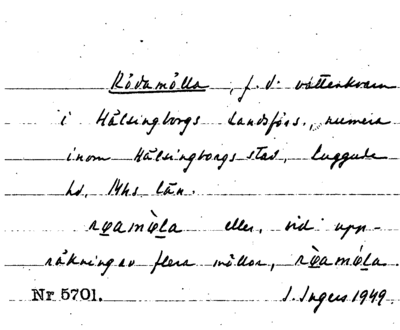 Rödamölla, f.d. vattenkvarn
i Hälsingborgs landsförs., numera
inom Hälsingborgs stad, Luggude
hd, Mhs län.
røamø̀la eller, vid upp-
räkning av flera möllor, rø̀amǿla.
Nr 5701. S. Ingers 1949.